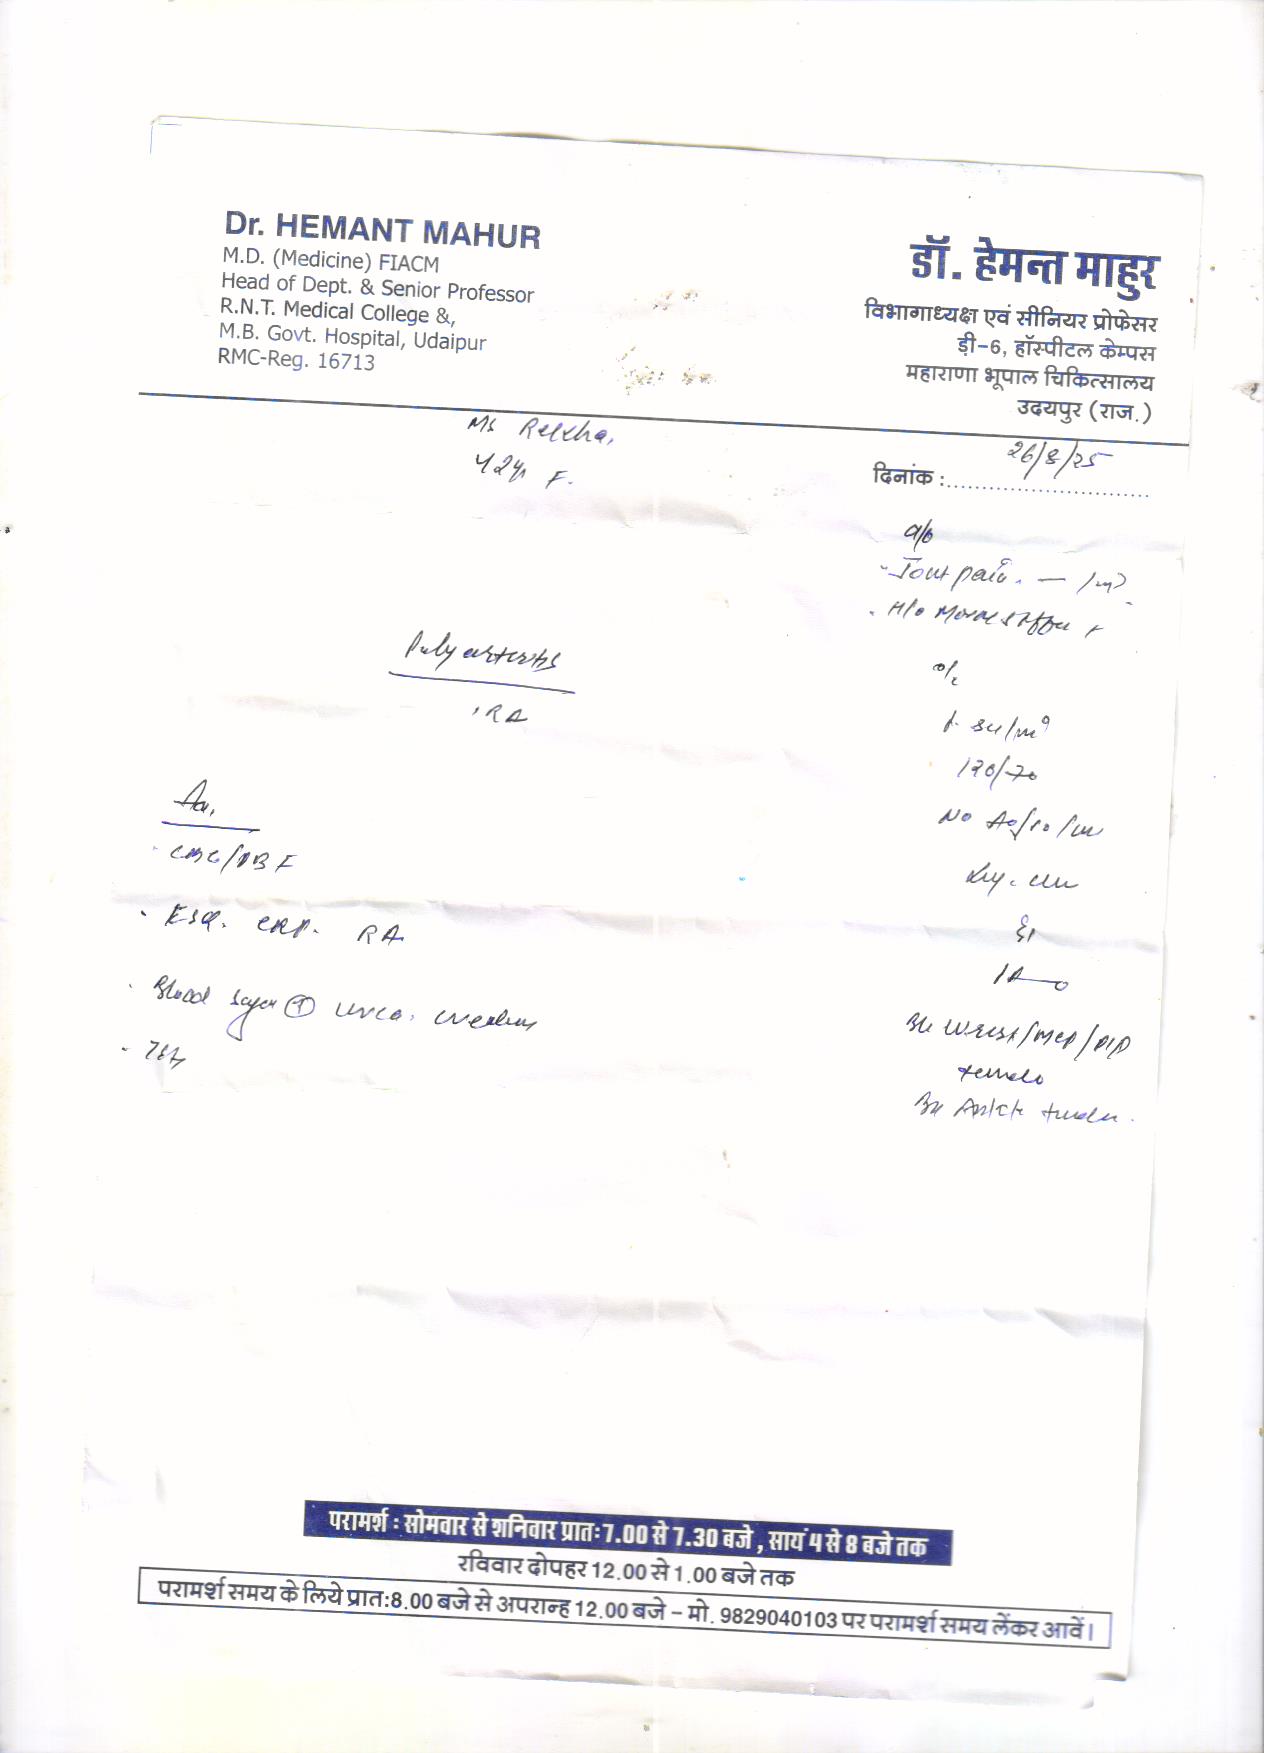 Dr. HEMANT MAHUR
M.D. (Medicine) FIACM
Head of Dept. & Senior Professor
R.N.T. Medical College &,
M.B. Govt. Hospital, Udaipur
RMC-Reg. 16713
डॉ. हेमन्त माहुर
विभागाध्यक्ष एवं सीनियर प्रोफेसर
ड़ी-6, हॉस्पीटल केम्पस
महाराणा भूपाल चिकित्सालय
उदयपुर (राज.)
Ms Rekha,
42y F.
दिनांक : 26/8/25
Joint pain. —
H/o
o/e
120/70
No
Polyarthritis
RA
CBC/PBF
ESR. CRP. RA
Blood Sugar urea, creatinine
B/L Wrist/MCP/PIP
tender
B/L Ankle tender.
परामर्श : सोमवार से शनिवार प्रातः7.00 से 7.30 बजे , सायं 4 से 8 बजे तक
रविवार दोपहर 12.00 से 1.00 बजे तक
परामर्श समय के लिये प्रात:8.00 बजे से अपरान्ह 12.00 बजे – मो. 9829040103 पर परामर्श समय लेंकर आवें।